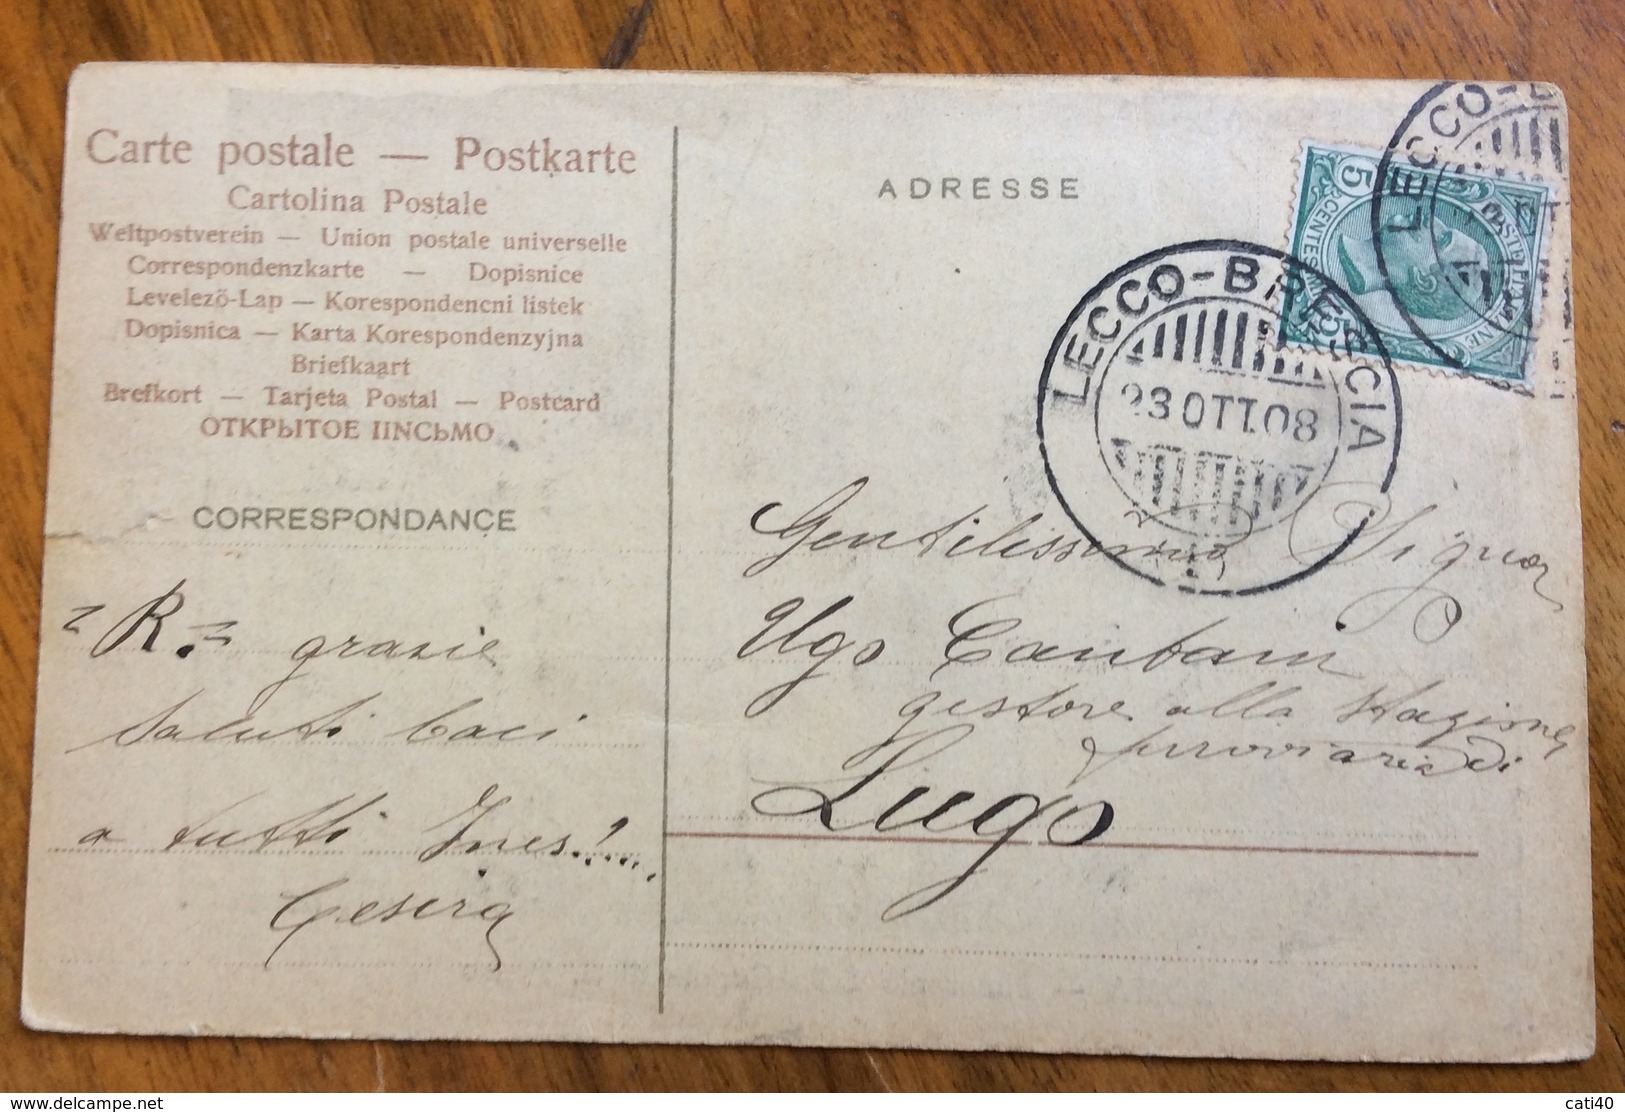 Carte postale — Postkarte
Cartolina Postale
Weltpostverein — Union postale universelle
Correspondenzkarte — Dopisnice
Levelező-Lap — Korespondencni listek
Dopisnica — Karta Korespondenzyjna
Briefkaart
Brefkort — Tarjeta Postal — Postcard
ОТКРЫТОЕ ПИСЬМО
CORRESPONDANCE
R. grazie
Saluti baci
a tutti Ines.
Cesira
ADRESSE
LECCO-BRESCIA
23 OTT. 08
LECCO-B
POSTE ITALIANE
CENTESIMI
5
5
Gentilissimo Signor
Ugo
gestore alla stazione
ferroviaria di
Lugo
cati40
www.delcampe.net